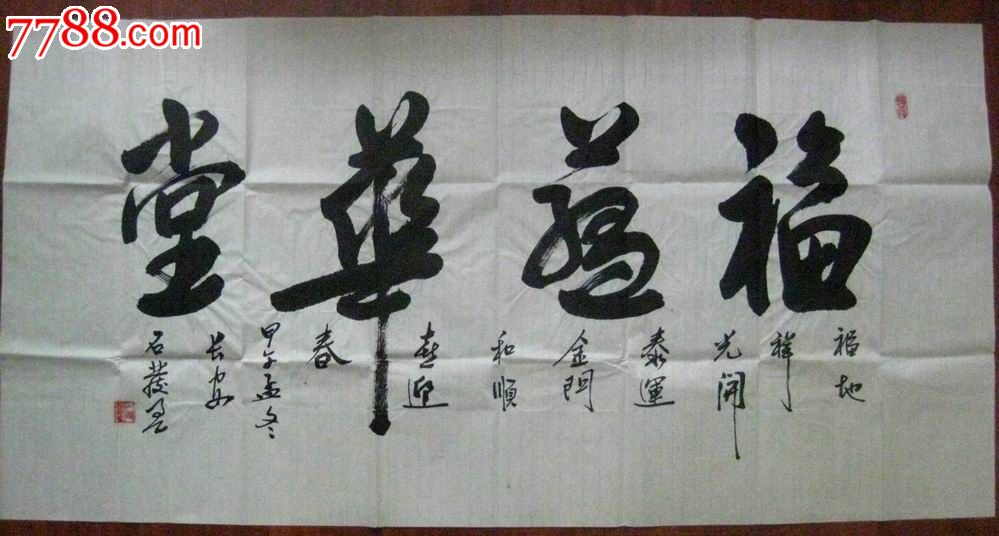 7788.com
福蘊華堂
福地
祥
光開
泰運
金門
和順
喜迎
春
甲午孟冬
长安
石發